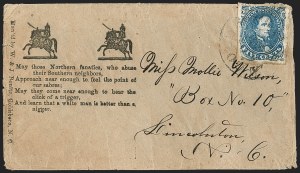 May those Northern fanatics, who abuse
their Southern neighbors,
Approach near enough to feel the point of
our sabres;
May they come near enough to hear the
click of a trigger,
And learn that a white man is better than a
nigger.
Miss Mollie Wilson,
"Box No. 10,"
Lincolnton
N. C.